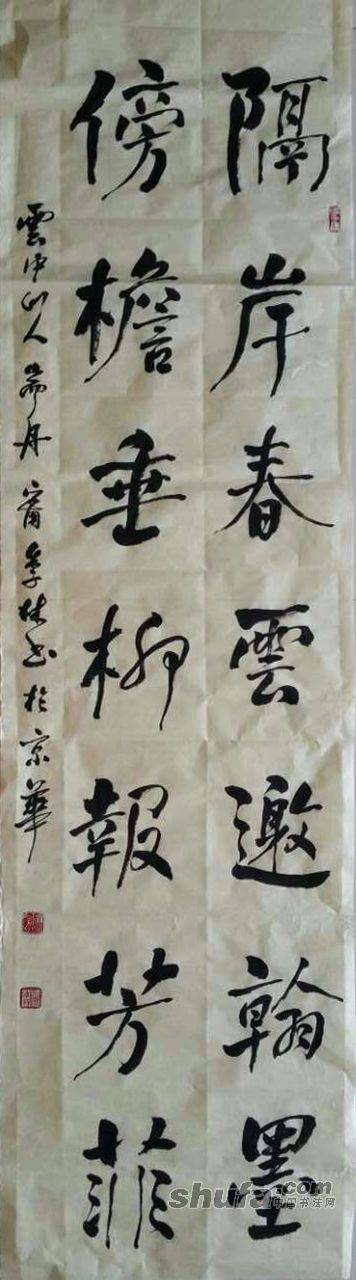 隔岸春雲邀翰墨
傍檐垂柳報芳菲
雲中山人 丹 甯季林书於京華
shufa.com
中国书法网